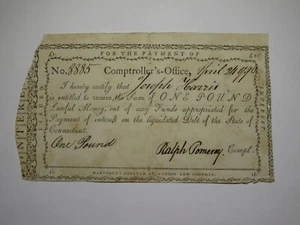 FOR THE PAYMENT OF
No. 8885 Comptroller's-Office, April 24 1790
I hereby certify that Joseph Harris
is entitled to receive the Sum of ONE POUND
Lawful Money, out of any Funds appropriated for the
Payment of interest on the liquidated Debt of the State of
Connecticut.
One Pound Ralph Pomeroy Compt.
HARTFORD: